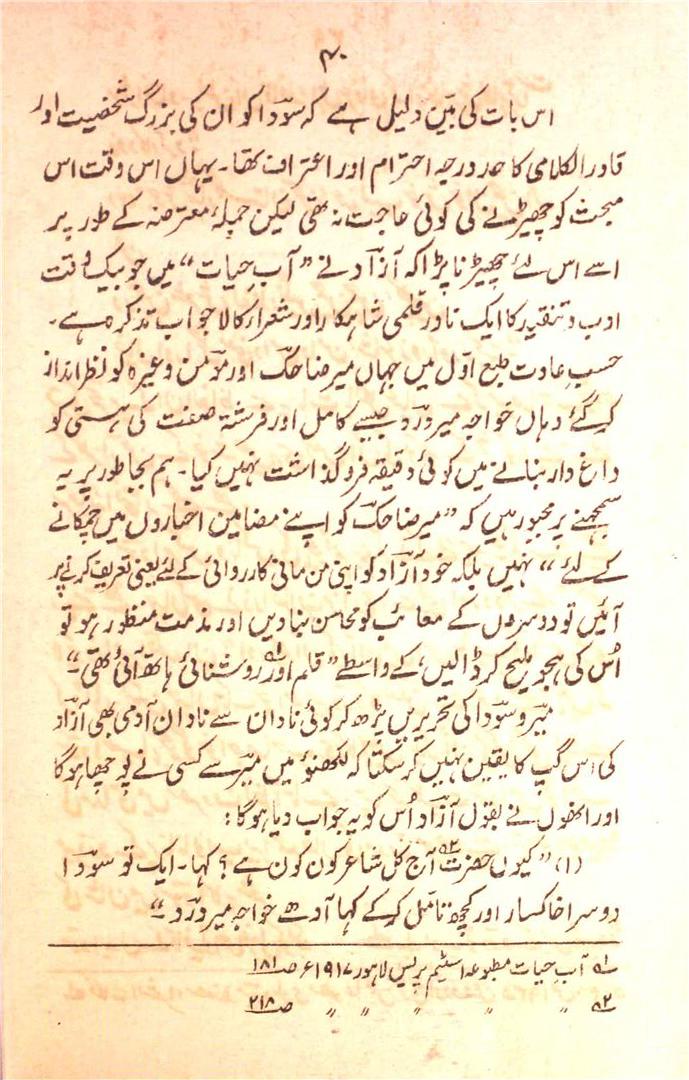 ۴۰
اس بات کی بیّن دلیل ہے کہ سوؔدا کو ان کی بزرگ شخصیت اور
قادر الکلامی کا حد درجہ احترام اور اعتراف تھا۔ یہاں اس وقت اس
مبحث کو چھیڑنے کی کوئی حاجت نہ تھی لیکن جملۂ معترضہ کے طور پر
اسے اس لئے چھیڑنا پڑا کہ آزؔاد نے ”آبِ حیات“ میں جو بیک وقت
ادب و تنقید کا ایک نادر قلمی شاہکار اور شعرار کا لاجواب تذکرہ ہے۔
حسبِ عادت طبع اوّل میں جہاں میر ضاحکؔ اور مومؔن وغیرہ کو نظر انداز
کر گئے وہاں خواجہ میر درؔد جیسے کامل اور فرشتہ صفت کی ہستی کو
داغ دار بنانے میں کوئی دقیقہ فروگذاشت نہیں کیا۔ ہم بجا طور پر یہ
سمجھنے پر مجبور ہیں کہ ”میر ضاحکؔ کو اپنے مضامین اخباروں میں چمکانے
کے لئے“ نہیں بلکہ خود آزؔاد کو اپنی من مانی کارروائی کے لئے یعنی تعریف کرنے پر
آئیں تو دوسروں کے معائب کو محاسن بنا دیں اور مذمت منظور ہو تو
اُس کی ہجو ملیح کر ڈالیں، کے واسطے ”قلم اور روشنائی ہاتھ آئی تھی۔“ ؎۱
میرؔ و سوؔدا کی تحریریں پڑھ کر کوئی نادان سے نادان آدمی بھی آزاد
کی اس گپ کا یقین نہیں کر سکتا کہ لکھنؤ میں میرؔ سے کسی نے پوچھا ہوگا
اور انھوں نے بقول آزؔاد اُس کو یہ جواب دیا ہوگا:
(۱) ”کیوں حضرت ؎۲ آج کل شاعر کون کون ہے؟ کہا۔ ایک تو سوؔدا
دوسرا خاکسار اور کچھ تامّل کر کے کہا آدھے خواجہ میر درؔد۔“
؎۱ آبِ حیات مطبوعہ اسٹیم پریس لاہور ۱۹۱۷ء صـ۱۸۱
؎۲ ” ” ” ” ” صـ۲۱۸